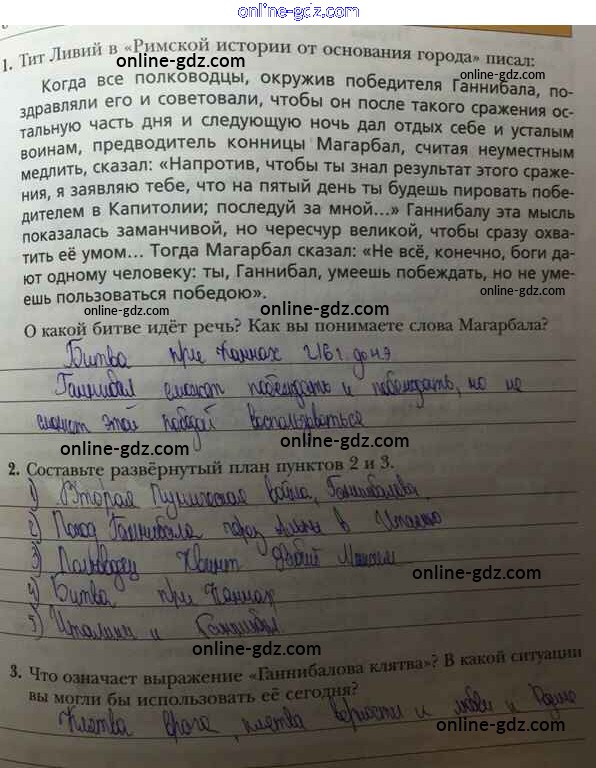 online-gdz.com
1. Тит Ливий в «Римской истории от основания города» писал:
online-gdz.com
Когда все полководцы, окружив победителя Ганнибала, по-
здравляли его и советовали, чтобы он после такого сражения ос-
online-gdz.com
тальную часть дня и следующую ночь дал отдых себе и усталым
воинам, предводитель конницы Магарбал, считая неуместным
медлить, сказал: «Напротив, чтобы ты знал результат этого сраже-
ния, я заявляю тебе, что на пятый день ты будешь пировать побе-
дителем в Капитолии; последуй за мной...» Ганнибалу эта мысль
показалась заманчивой, но чересчур великой, чтобы сразу охва-
тить её умом... Тогда Магарбал сказал: «Не всё, конечно, боги да-
ют одному человеку: ты, Ганнибал, умеешь побеждать, но не уме-
ешь пользоваться победою».
online-gdz.com
online-gdz.com
online-gdz.com
О какой битве идёт речь? Как вы понимаете слова Магарбала?
Битва при Каннах 216 г. до нэ
Ганнибал сможет победждать и побеждать, но не
сможет этой победой воспользоваться
online-gdz.com
online-gdz.com
2. Составьте развёрнутый план пунктов 2 и 3.
1) Вторая Пуническая война, Ганнибалова
online-gdz.com
2) Поход Ганнибала через Альпы в Италию
3) Полководец Квинт Фабий Максим
online-gdz.com
4) Битва при Каннах
5) Италики и Ганнибал
online-gdz.com
3. Что означает выражение «Ганнибалова клятва»? В какой ситуации
вы могли бы использовать её сегодня?
online-gdz.com
Клятва врага, клятва верности и любви к Родине
online-gdz.com